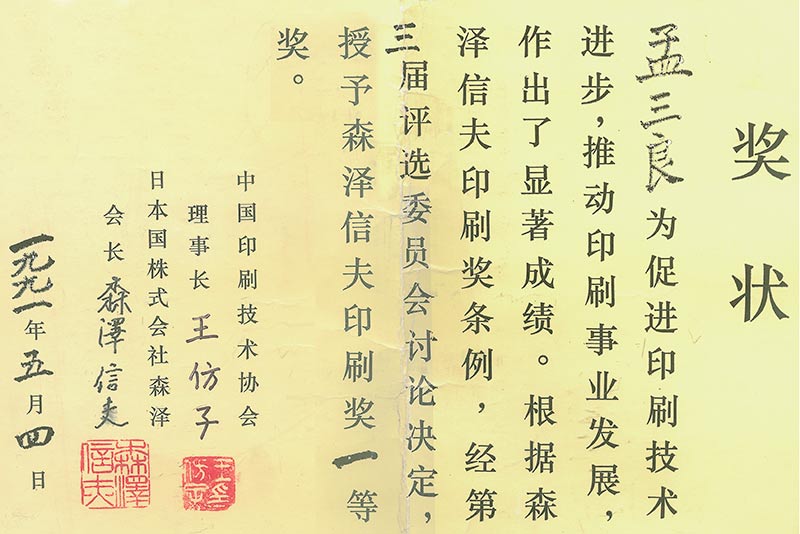 奖状
孟三良为促进印刷技术
进步，推动印刷事业发展，
作出了显著成绩。根据森
泽信夫印刷奖条例，经第
三届评选委员会讨论决定，
授予森泽信夫印刷奖一等
奖。
中国印刷技术协会
理事长 王仿子
日本国株式会社森泽
会长 森澤信夫
一九九一年五月四日
森澤信夫